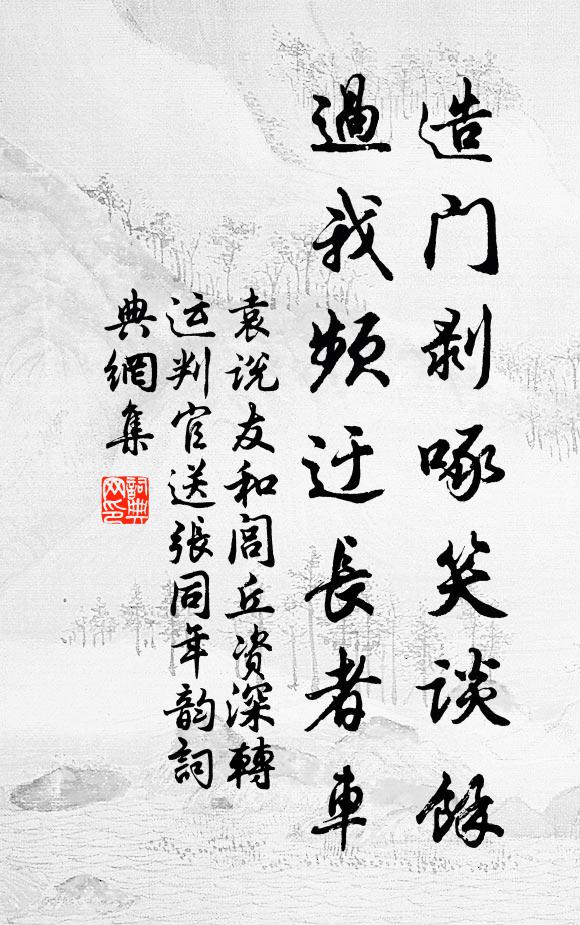 造门剥啄笑谈馀
過我频迂長者車
袁说友和閻丘资深轉
运判官送張同年韵詞
典網集
詞典网印